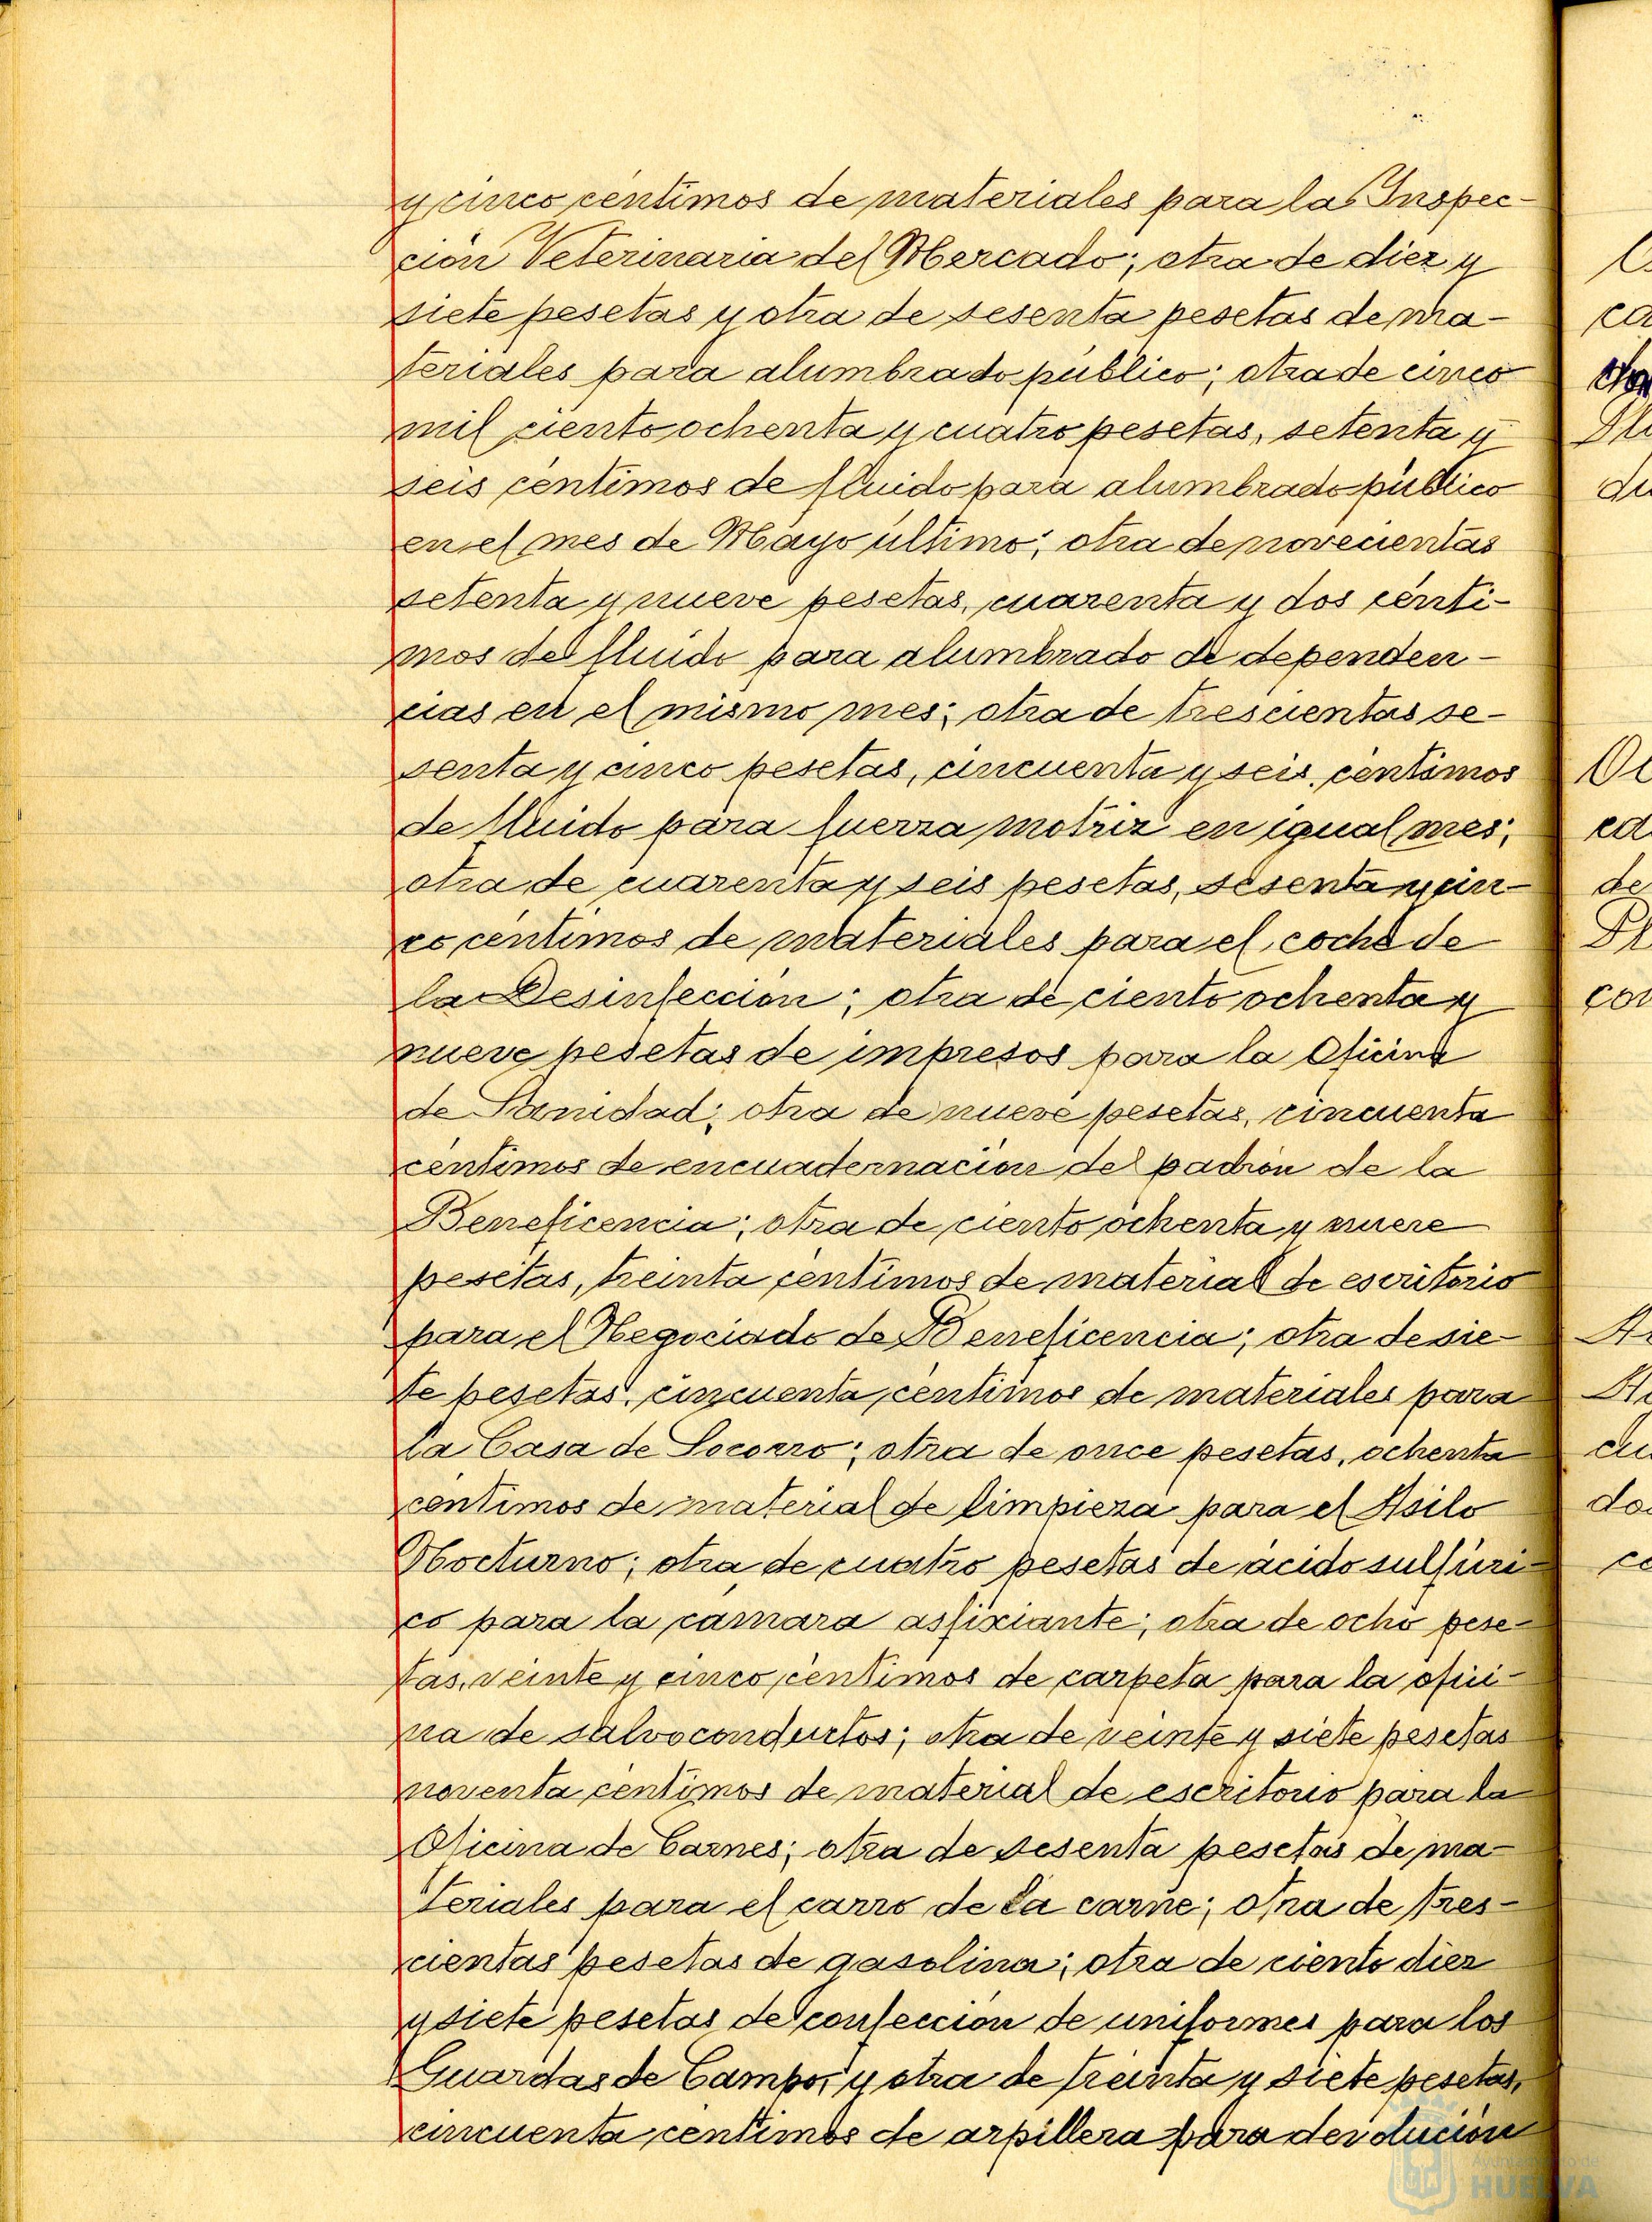 y cinco céntimos de materiales para la Inspec-
ción Veterinaria del Mercado; otra de diez y
siete pesetas y otra de sesenta pesetas de ma-
teriales para alumbrado público; otra de cinco
mil ciento ochenta y cuatro pesetas, setenta y
seis céntimos de fluido para alumbrado público
en el mes de Mayo último; otra de novecientas
setenta y nueve pesetas, cuarenta y dos cénti-
mos del fluido para alumbrado de dependen-
cias en el mismo mes; otra de trescientas se-
senta y cinco pesetas, cincuenta y seis céntimos
de fluido para fuerza motriz en igual mes;
otra de cuarenta y seis pesetas, sesenta y cin-
co céntimos de materiales para el coche de
la Desinfección; otra de ciento ochenta y
nueve pesetas de impresos para la Oficina
de Sanidad; otra de nueve pesetas, cincuenta
céntimos de encuadernación del padrón de la
Beneficencia; otra de ciento ochenta y nueve
pesetas, treinta céntimos de material de escritorio
para el Negociado de Beneficencia; otra de sie-
te pesetas, cincuenta céntimos de materiales para
la Casa de Socorro; otra de once pesetas, ochenta
céntimos de material de limpieza para el Asilo
Nocturno; otra de cuatro pesetas de ácido sulfúri-
co para la cámara asfixiante; otra de ocho pese-
tas, veinte y cinco céntimos de carpeta para la ofici-
na de salvoconductos; otra de veinte y siete pesetas
noventa céntimos de material de escritorio para la
Oficina de Carnes; otra de sesenta pesetas de ma-
teriales para el carro de la carne; otra de tres-
cientas pesetas de gasolina; otra de ciento diez
y siete pesetas de confección de uniformes para los
Guardas de Campo, y otra de treinta y siete pesetas,
cincuenta céntimos de arpillera para devolución
Ayuntamiento de
HUELVA